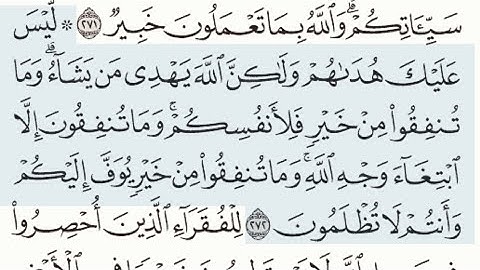 سَيِّـَٔاتِكُمْ ۗ وَٱللَّهُ بِمَا تَعْمَلُونَ خَبِيرٌ ﴿٢٧١﴾ ۞ لَّيْسَ
عَلَيْكَ هُدَىٰهُمْ وَلَـٰكِنَّ ٱللَّهَ يَهْدِى مَن يَشَآءُ ۗ وَمَا
تُنفِقُوا۟ مِنْ خَيْرٍ فَلِأَنفُسِكُمْ ۚ وَمَا تُنفِقُونَ إِلَّا
ٱبْتِغَآءَ وَجْهِ ٱللَّهِ ۚ وَمَا تُنفِقُوا۟ مِنْ خَيْرٍ يُوَفَّ إِلَيْكُمْ
وَأَنتُمْ لَا تُظْلَمُونَ ﴿٢٧٢﴾ لِلْفُقَرَآءِ ٱلَّذِينَ أُحْصِرُوا۟